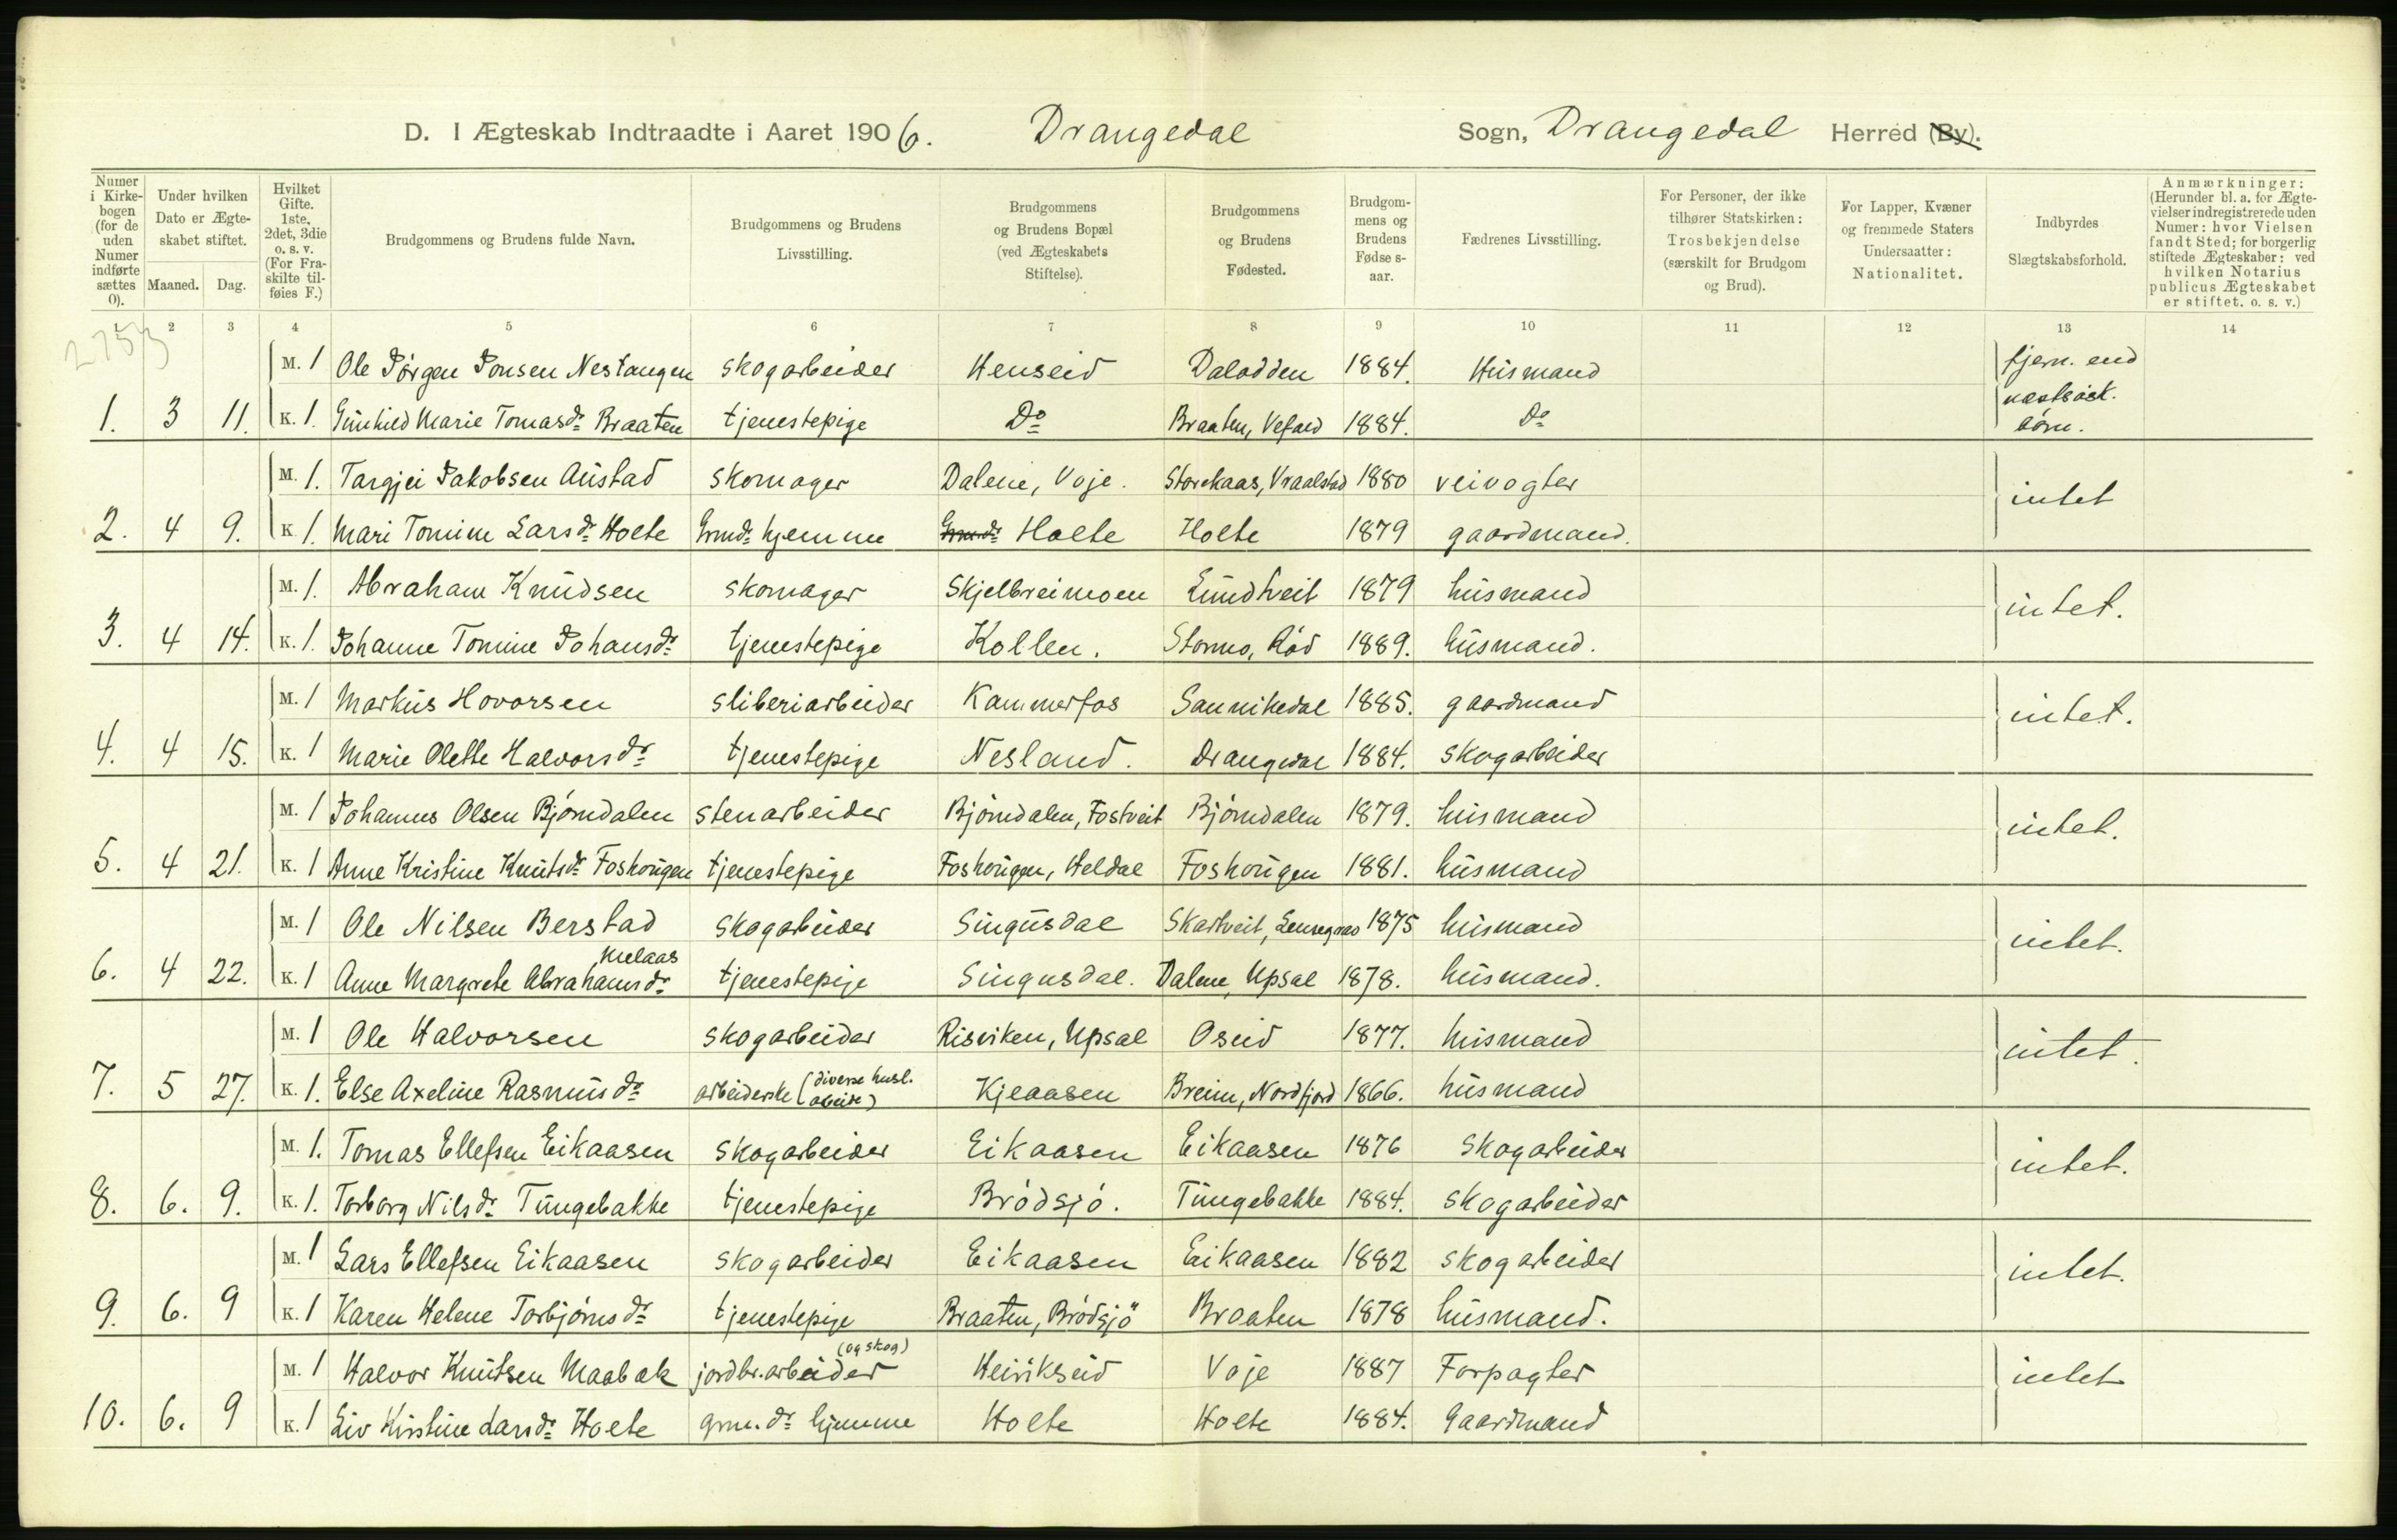 D. I Ægteskab Indtraadte i Aaret 1906. Drangedal Sogn, Drangedal Herred (By).
Numer i Kirkebogen (for de uden Numer indførte sættes 0).
Under hvilken Dato er Ægteskabet stiftet.
Maaned. Dag.
Hvilket Gifte. 1ste, 2det, 3die o. s. v. (For Fraskilte tilføies F.)
Brudgommens og Brudens fulde Navn.
Brudgommens og Brudens Livsstilling.
Brudgommens og Brudens Bopæl (ved Ægteskabets Stiftelse).
Brudgommens og Brudens Fødested.
Brudgommens og Brudens Fødselsaar.
Fædrenes Livsstilling.
For Personer, der ikke tilhører Statskirken: Trosbekjendelse (særskilt for Brudgom og Brud).
For Lapper, Kvæner og fremmede Staters Undersaatter: Nationalitet.
Indbyrdes Slægtskabsforhold.
Anmærkninger: (Herunder bl. a. for Ægtevielser indregistrerede uden Numer: hvor Vielsen fandt Sted; for borgerlig stiftede Ægteskaber: ved hvilken Notarius publicus Ægteskabet er stiftet. o. s. v.)
1 2 3 4 5 6 7 8 9 10 11 12 13 14
M. 1 Ole Jörgen Jonsen Nestangen skogarbeider Henseid Dalodden 1884. Husmand fjern. end
1. 3 11. K. 1. Gunhild Marie Tomasdr Braaten tjenestepige Do Braaten, 1884. Do næstsösk. börn.
M. 1. Targjei Jakobsen Austad skomager Dalene, Voje. Storekaas, Vraalstad 1880 veivogter intet
2. 4 9. K. 1. Mari Tomine Larsdr Holte Grmdr hjemme Holte Holte 1879 gaardmand.
M. 1. Abraham Knudsen skomager Skjelbreimoen Lundtveit 1879 husmand intet.
3. 4 14. K. 1. Johanne Tomine Johansdr tjenestepige Kollen. Stormo, Röd 1889. husmand.
M. 1 Markus Hovorsen sliberiarbeider Kammerfos Sannikedal 1885. gaardmand intet.
4. 4 15. K. 1 Marie Olette Halvorsdr tjenestepige Nesland. Drangedal 1884. skogarbeider
M. 1 Johannes Olsen Björndalen stenarbeider Björndalen, Tostveit Björndalen 1879. husmand intet.
5. 4 21. K. 1 Anne Kristine Knutsdr Foshougen tjenestepige Foshougen, Heldal Foshougen 1881. husmand
M. 1 Ole Nilsen Berstad skogarbeider Singusdal Skartveit, 1875 husmand intet.
6. 4 22. K. 1 Anne Margrete Abrahamsdr tjenestepige Singusdal. Dalene, Upsal 1878. husmand.
M. 1 Ole Halvorsen skogarbeider Risviken, Upsal Oseid 1877. husmand intet.
7. 5 27. K. 1. Else Axeline Rasmusdr arbeiderske (diverse husl. arbeide) Kjeaasen Breim, Nordfjord 1866. husmand
M. 1. Tomas Ellefsen Eikaasen skogarbeider Eikaasen Eikaasen 1876 skogarbeider intet.
8. 6. 9. K. 1. Torborg Nilsdr Tungebakke tjenestepige Brödsjö. Tungebakke 1884. skogarbeider
M. 1 Lars Ellefsen Eikaasen skogarbeider Eikaasen Eikaasen 1882 skogarbeider intet.
9. 6. 9 K. 1 Karen Helene Torbjörnsdr tjenestepige Braaten, Brödsjö Braaten 1878 husmand.
M. 1 Halvor Knutsen Maabæk jordbr.arbeider (og skog) Heirikseid Voje 1887 Forpagter intet
10. 6. 9 K. 1 Liv Kirstine Larsdr Holte grm. dr hjemme Holte Holte 1884. Gaardmand